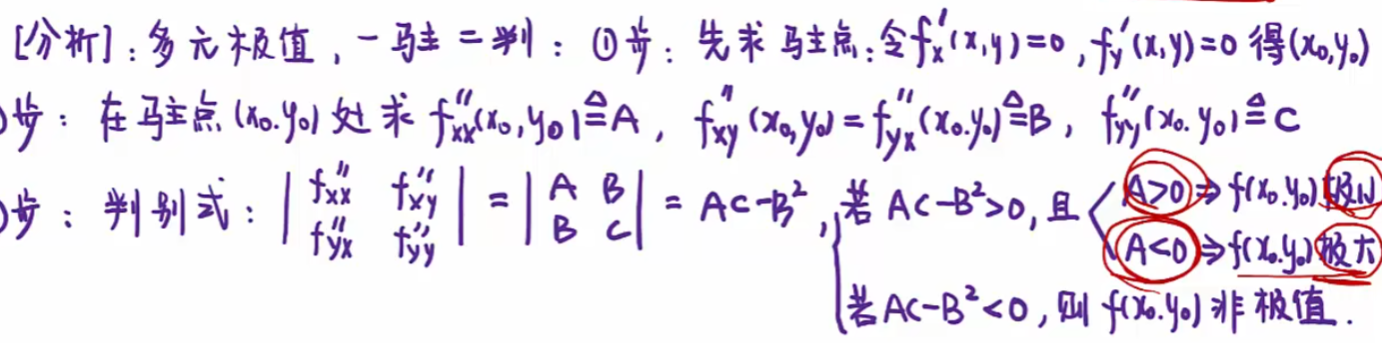 [分析]:多元极值,一驻二判:①步:先求驻点:令f'x(x,y)=0,f'y(x,y)=0得(x₀,y₀)
步:在驻点(x₀.y₀)处求f''xx(x₀,y₀)≜A,f''xy(x₀,y₀)=f''yx(x₀.y₀)≜B,f''yy(x₀.y₀)≜C
步:判别式:|f''xx f''xy; f''yx f''yy|=|A B; B C|=AC-B²,若AC-B²>0,且
A>0⇒f(x₀.y₀)极小
A<0⇒f(x₀.y₀)极大
若AC-B²<0,则f(x₀.y₀)非极值.